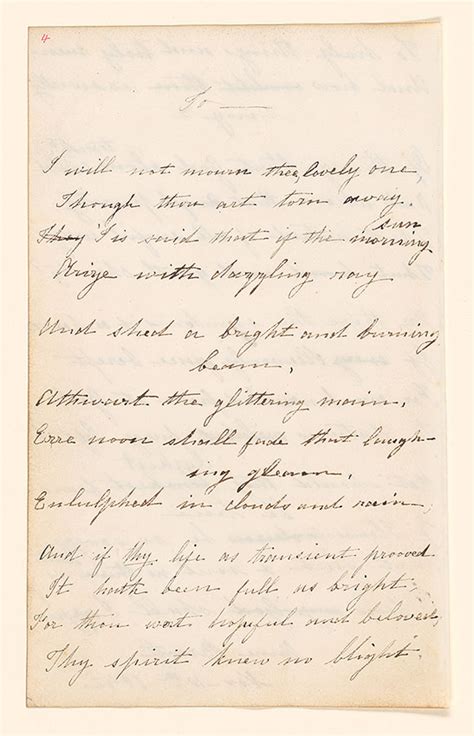 4
To ——
I will not mourn thee, lovely one,
Though thou art torn away.
They 'Tis said that if the morning sun
Arize with dazzling ray
And shed a bright and burning
beam,
Athwart the glittering main,
Erre noon shall fade that laugh-
ing gleam,
Enlulphed in clouds and rain,
And if thy life as transient prooved
It hath been full as bright,
For thou wast hopeful and beloved,
Thy spirit knew no blight.